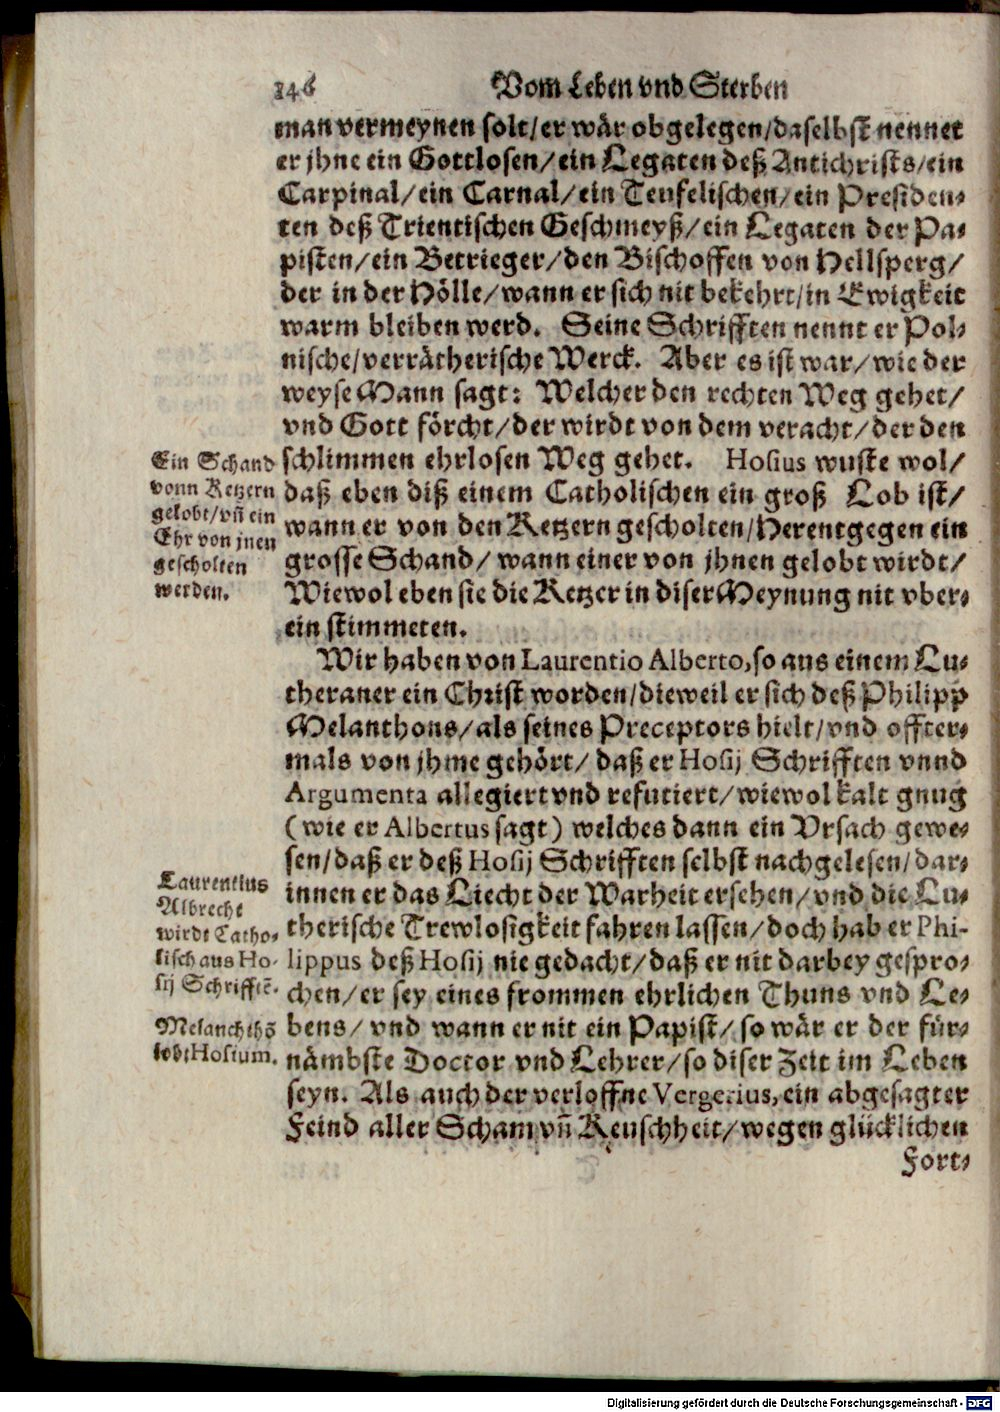 146 Vom Leben vnd Sterben
man vermeynen solt/er wär obgelegen/daselbst nennet
er jhne ein Gottlosen/ein Legaten deß Antichrists/ein
Carpinal/ein Carnal/ein Teufelischen/ein Presiden-
ten deß Trientischen Geschmeyß/ein Legaten der Pa-
pisten/ein Betrieger/den Bischoffen von Hellsperg/
der in der Hölle/wann er sich nit bekehrt/in Ewigkeit
warm bleiben werd. Seine Schrifften nennt er Pol-
nische/verrätherische Werck. Aber es ist war/wie der
weyse Mann sagt: Welcher den rechten Weg gehet/
vnd Gott förcht/der wirdt von dem veracht/der den
schlimmen ehrlosen Weg gehet. Hosius wuste wol/
daß eben diß einem Catholischen ein groß Lob ist/
wann er von den Ketzern gescholten/Herentgegen ein
grosse Schand/wann einer von jhnen gelobt wirdt/
Wiewol eben sie die Ketzer in diser Meynung nit vber-
ein stimmeten.
Ein Schand
vonn Ketzern
gelobt/vñ ein
Ehr von jnen
gescholten
werden.
Wir haben von Laurentio Alberto,so aus einem Lu-
theraner ein Christ worden/dieweil er sich deß Philipp
Melanthons/als seines Preceptors hielt/vnd offter-
mals von jhme gehört/daß er Hosij Schrifften vnnd
Argumenta allegiert vnd refutiert/wiewol kalt gnug
(wie er Albertus sagt) welches dann ein Vrsach gewe-
sen/daß er deß Hosij Schrifften selbst nachgelesen/dar-
innen er das Liecht der Warheit ersehen/vnd die Lu-
therische Trewlosigkeit fahren lassen/doch hab er Phi-
lippus deß Hosij nie gedacht/daß er nit darbey gespro-
chen/er sey eines frommen ehrlichen Thuns vnd Le-
bens/vnd wann er nit ein Papist/so wär er der für-
nämbste Doctor vnd Lehrer/so diser Zeit im Leben
seyn. Als auch der verloffne Vergerius,ein abgesagter
Feind aller Scham vñ Keuschheit/wegen glücklichen
Laurentius
Albrecht
wirdt Catho-
lisch aus Ho-
sij Schrifftẽ.
Melanchthõ
lobt Hosium.
Fort-
Digitalisierung gefördert durch die Deutsche Forschungsgemeinschaft - DFG